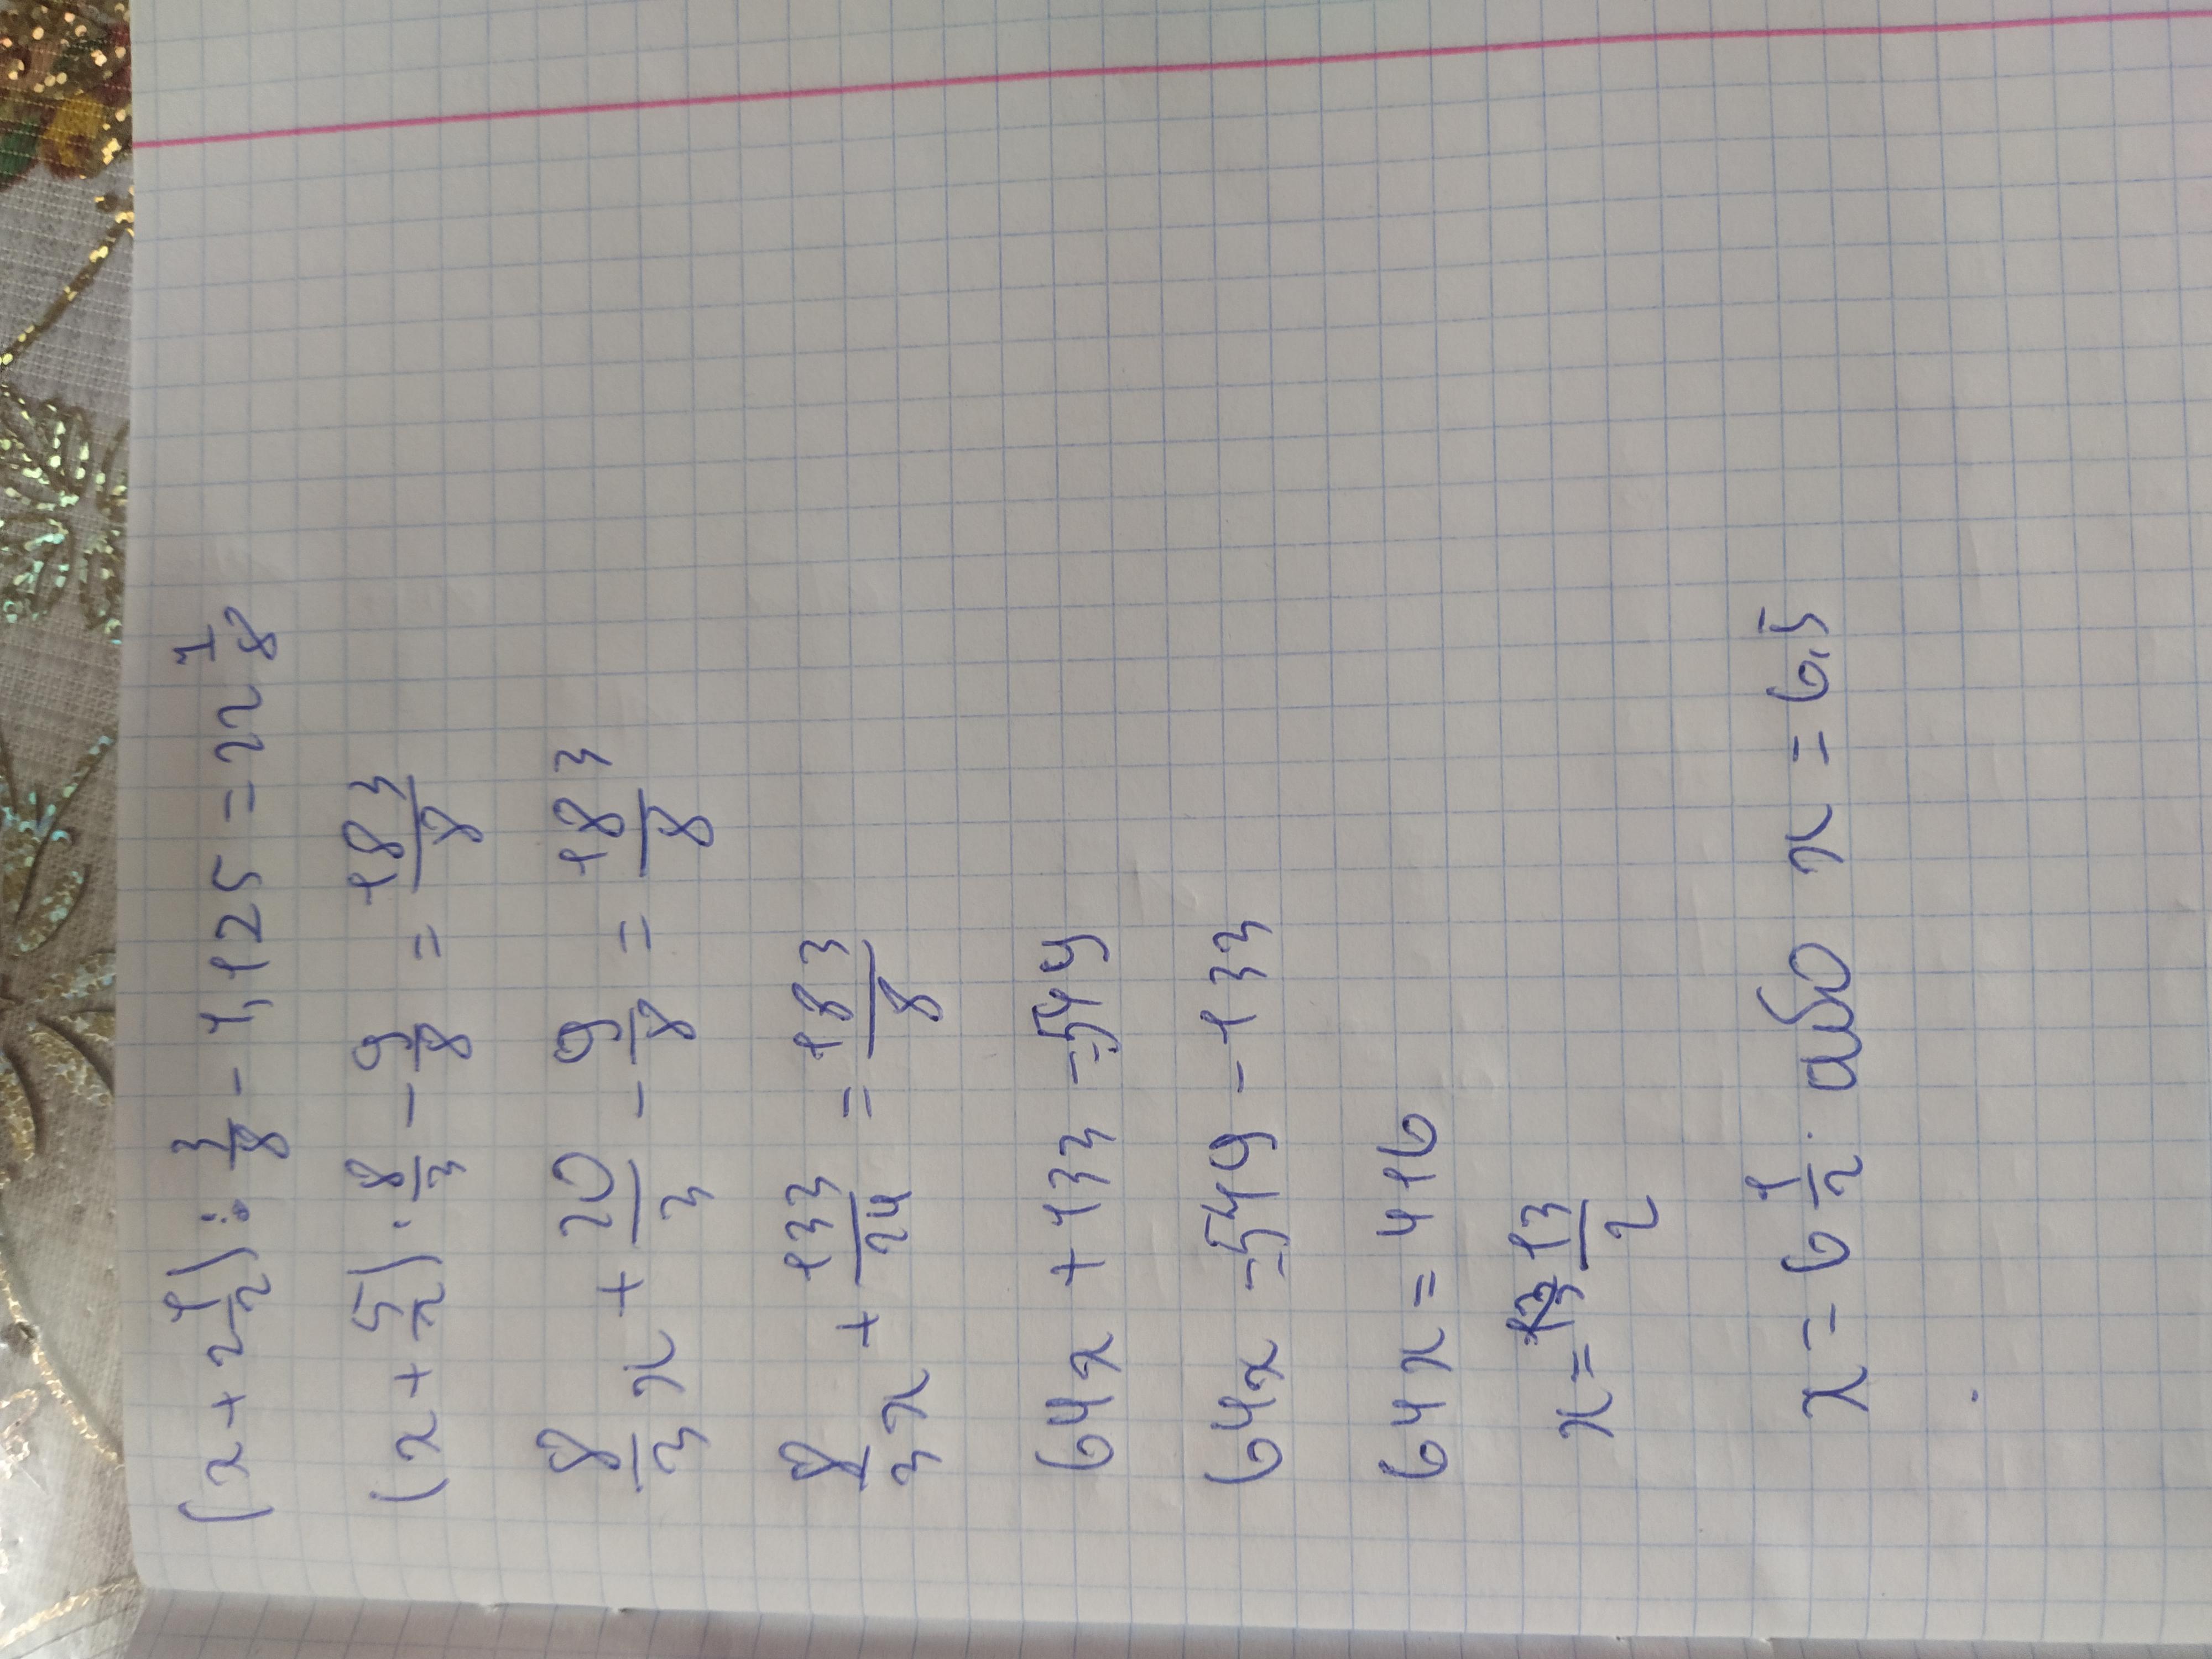 (x + 2 1/2) : 3/8 - 1,125 = 22 1/8
(x + 5/2) · 8/3 - 9/8 = 183/8
8/3 x + 20/3 - 9/8 = 183/8
8/3 x + 133/24 = 183/8
64x + 133 = 549
64x = 549 - 133
64x = 416
x = 13/2
x = 6 1/2 . або x = 6,5